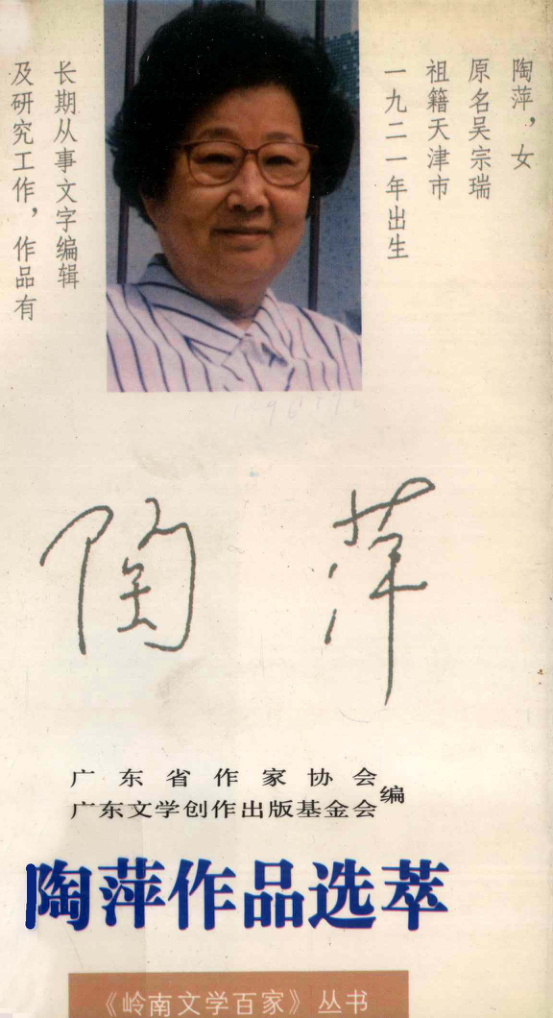 陶萍，女
原名吴宗瑞
祖籍天津市
一九二一年出生
长期从事文字编辑
及研究工作，作品有
陶萍
广东省作家协会
广东文学创作出版基金会
编
陶萍作品选萃
《岭南文学百家》丛书